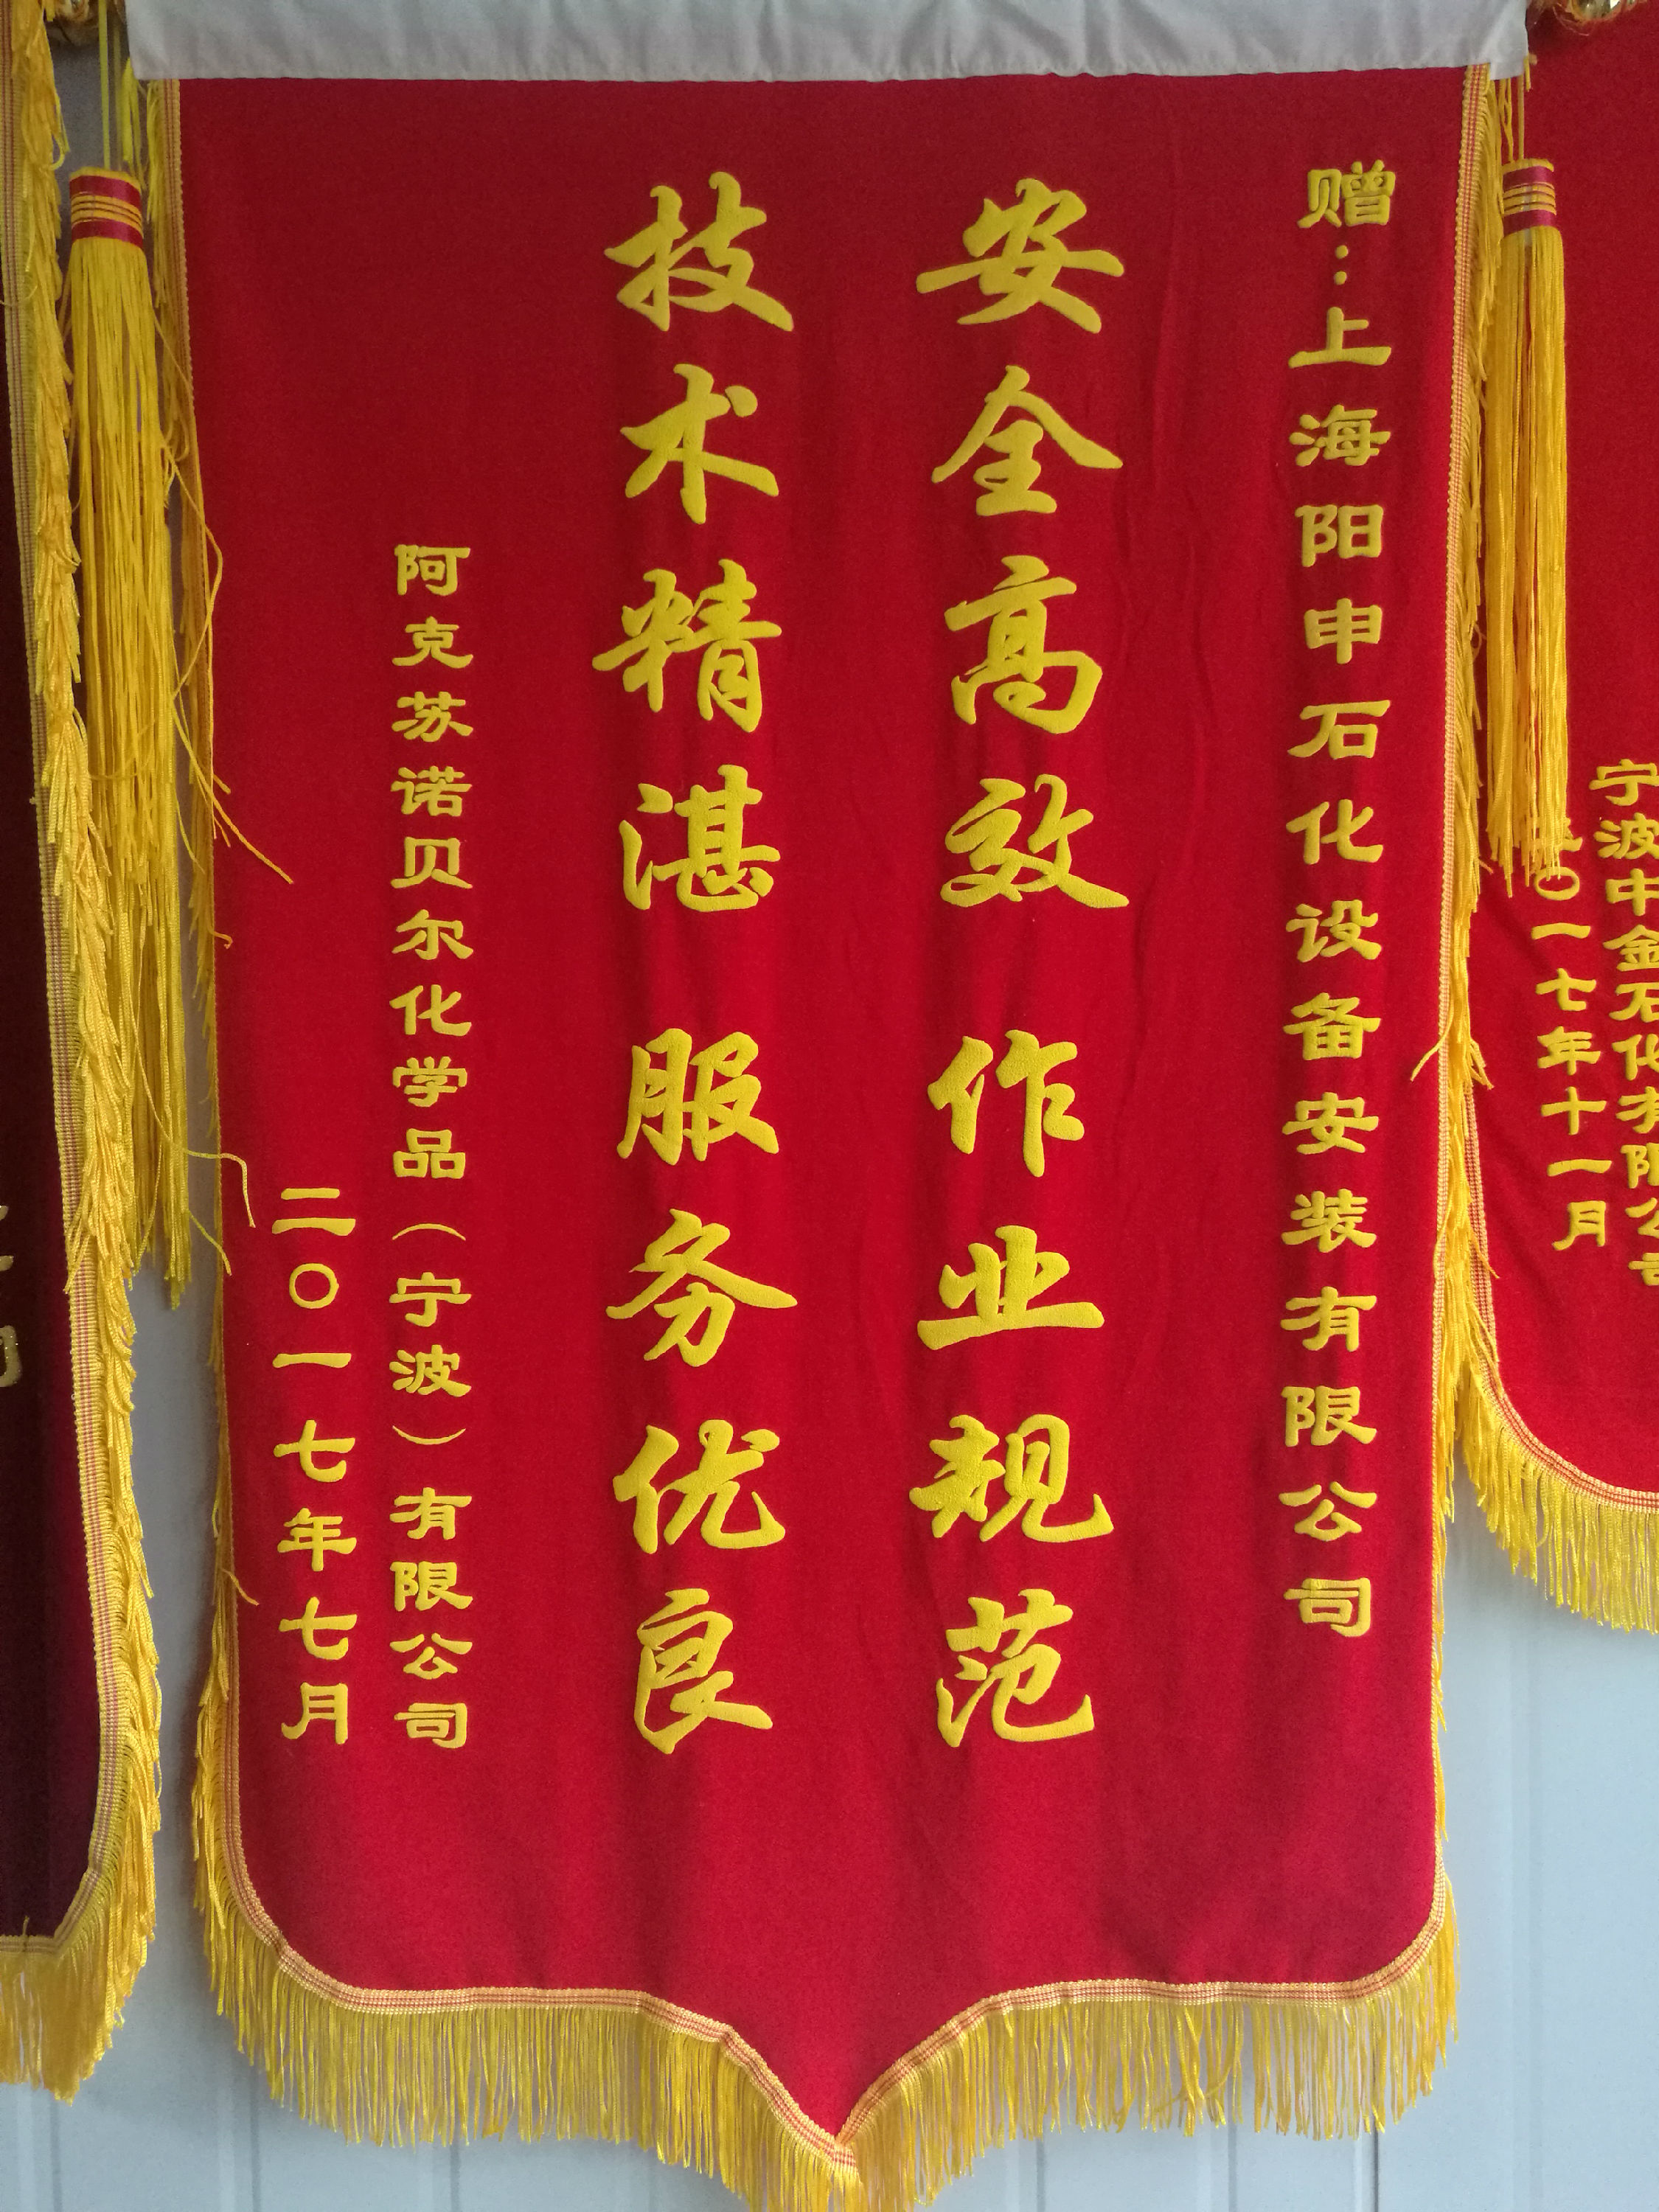 赠:上海阳申石化设备安装有限公司
安全高效 作业规范
技术精湛 服务优良
阿克苏诺贝尔化学品(宁波)有限公司
二〇一七年七月
宁波中金石化有限公司
〇一七年十一月